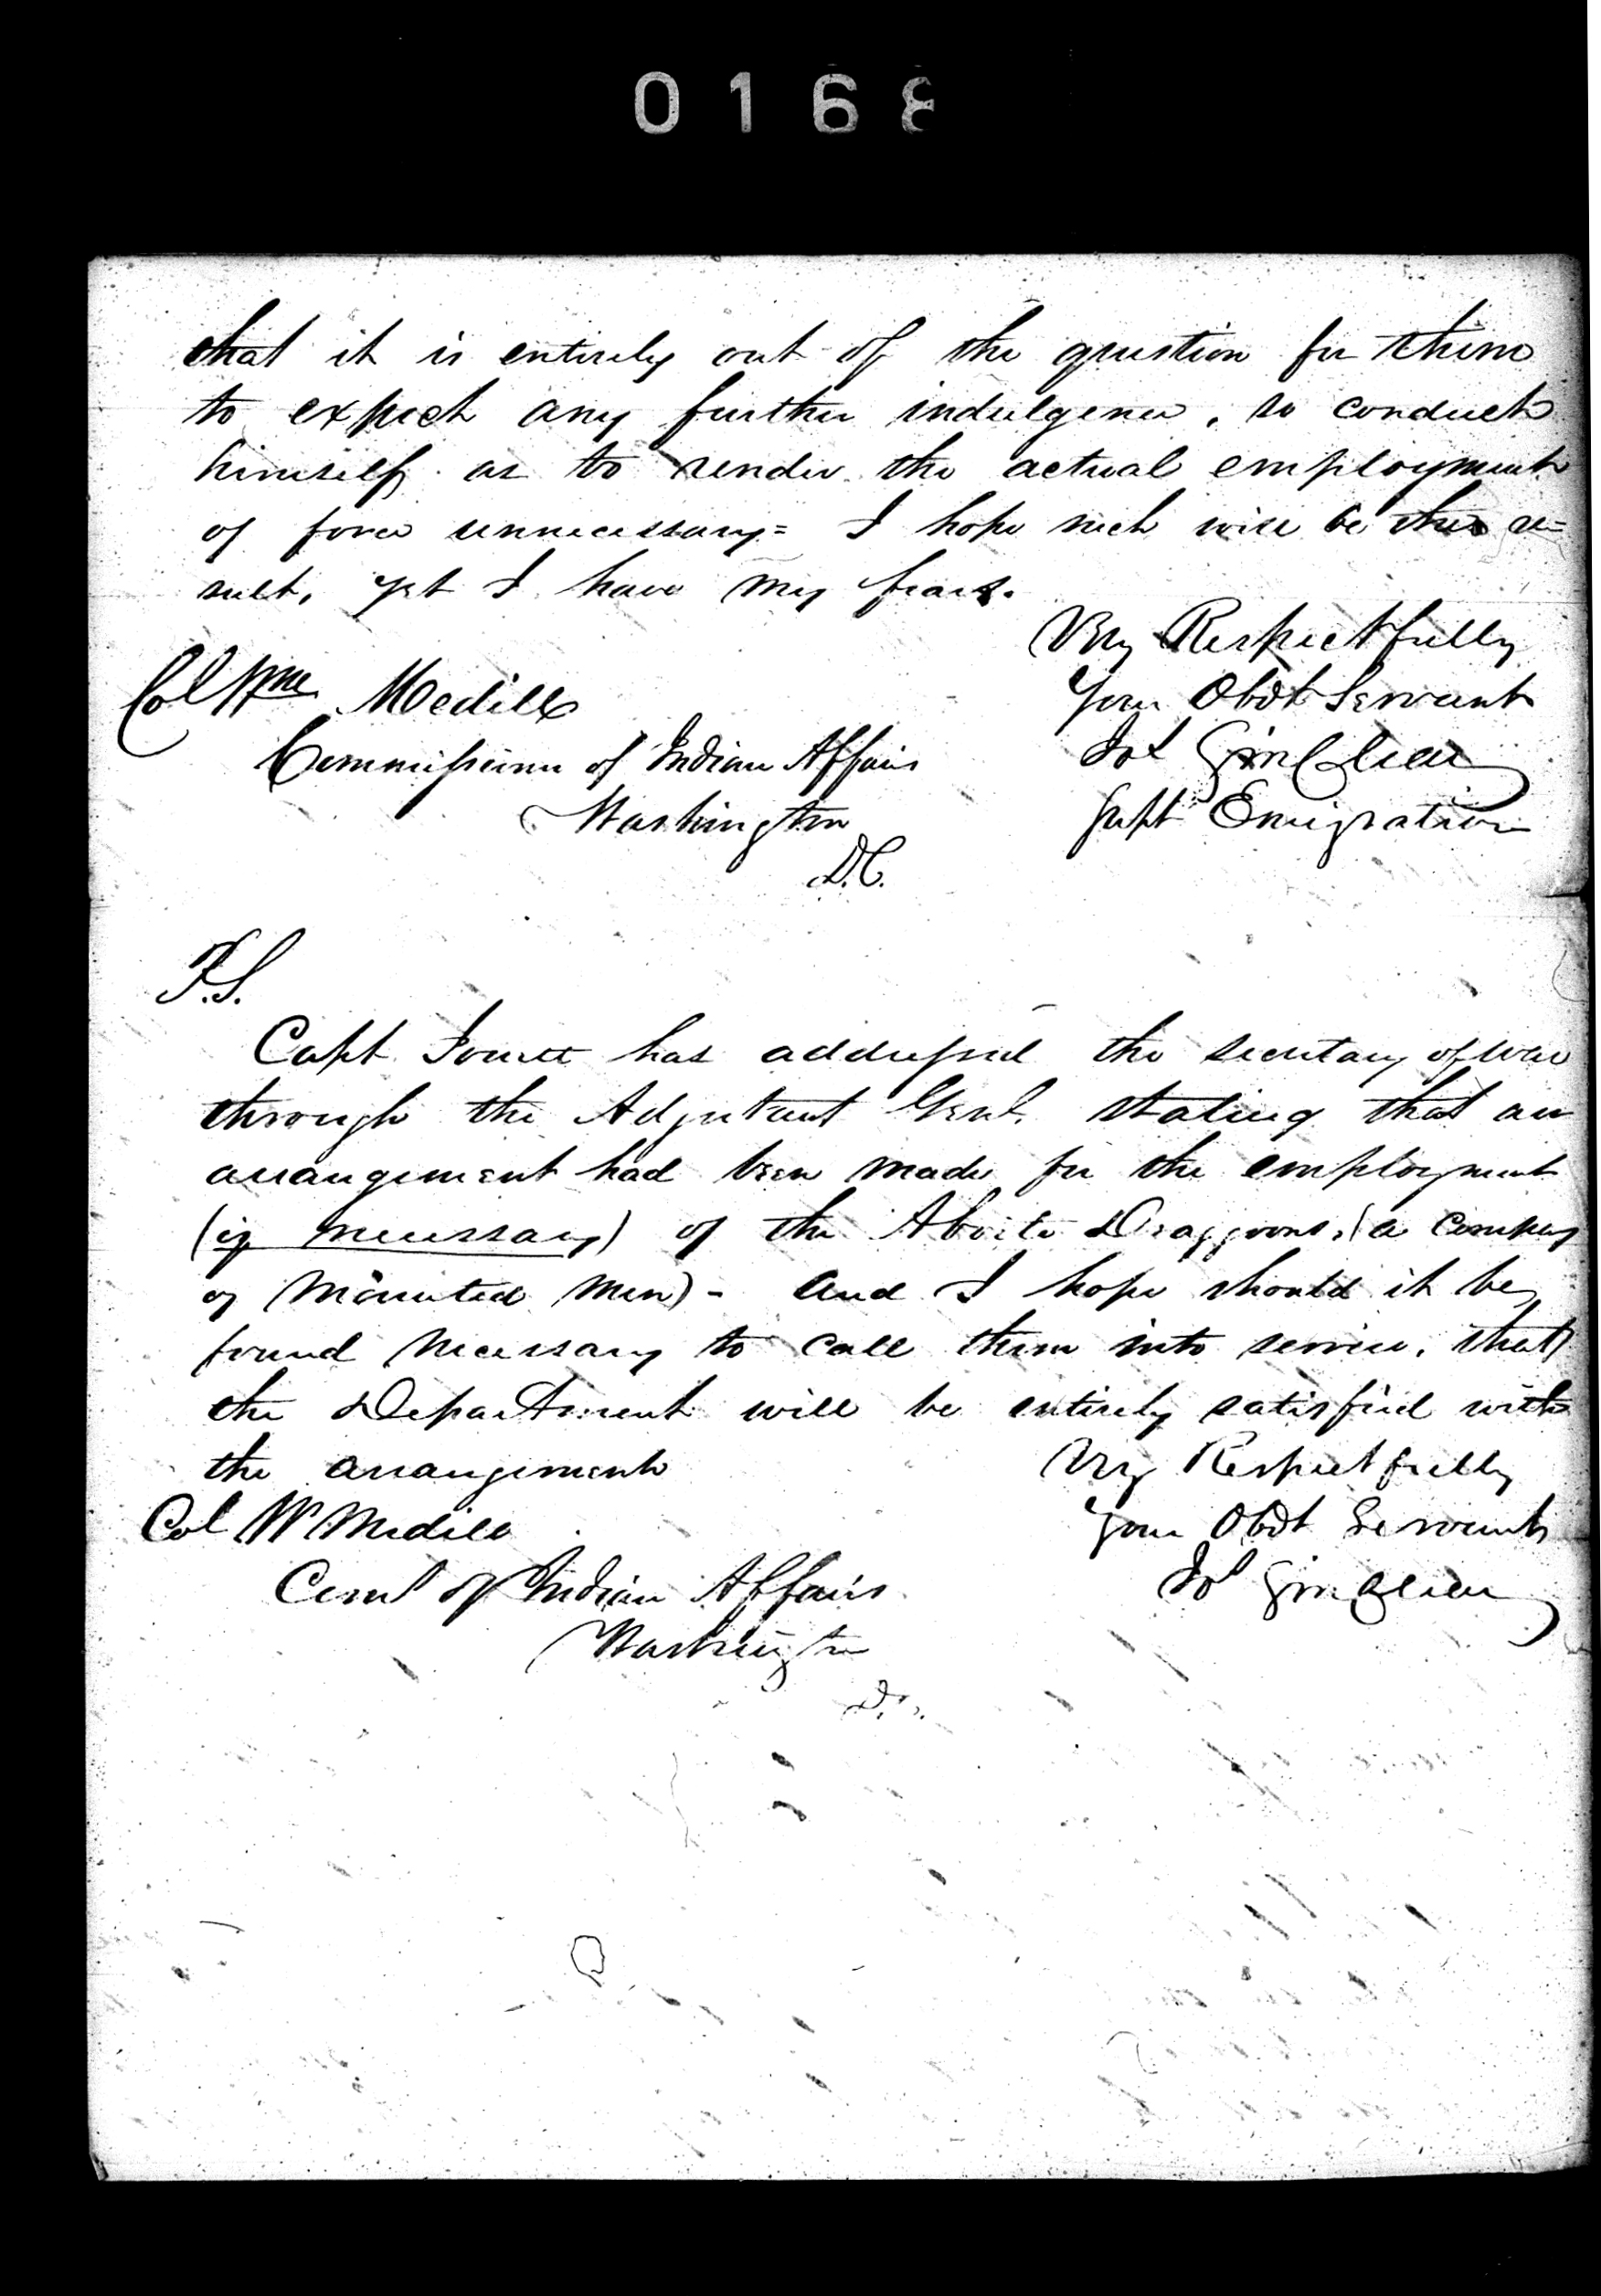 0168
that it is entirely out of the question for them
to expect any further indulgence, so conduct
himself as to render the actual employment
of force unnecessary= I hope such will be the re=
sult, yet I have my fears.
Very Respectfully
Col Wm Medill
Your Obdt Servant
Commissioner of Indian Affairs
Jos Sinclear
Washington
Supt Emigration
D.C.
P.S.
Capt Jouett has addressed the secretary of war
through the Adjutant Genl. stating that an
arrangement had been made for the employment
(if necessary) of the Aboite Draggoons, (a company
of Mounted Men) - and I hope should it be
found necessary to call them into service, that
the Department will be entirely satisfied with
the arrangement
Very Respectfully
Col W Medill
Your Obdt Servant
Coml of Indian Affairs
Jos Sinclear
Washington